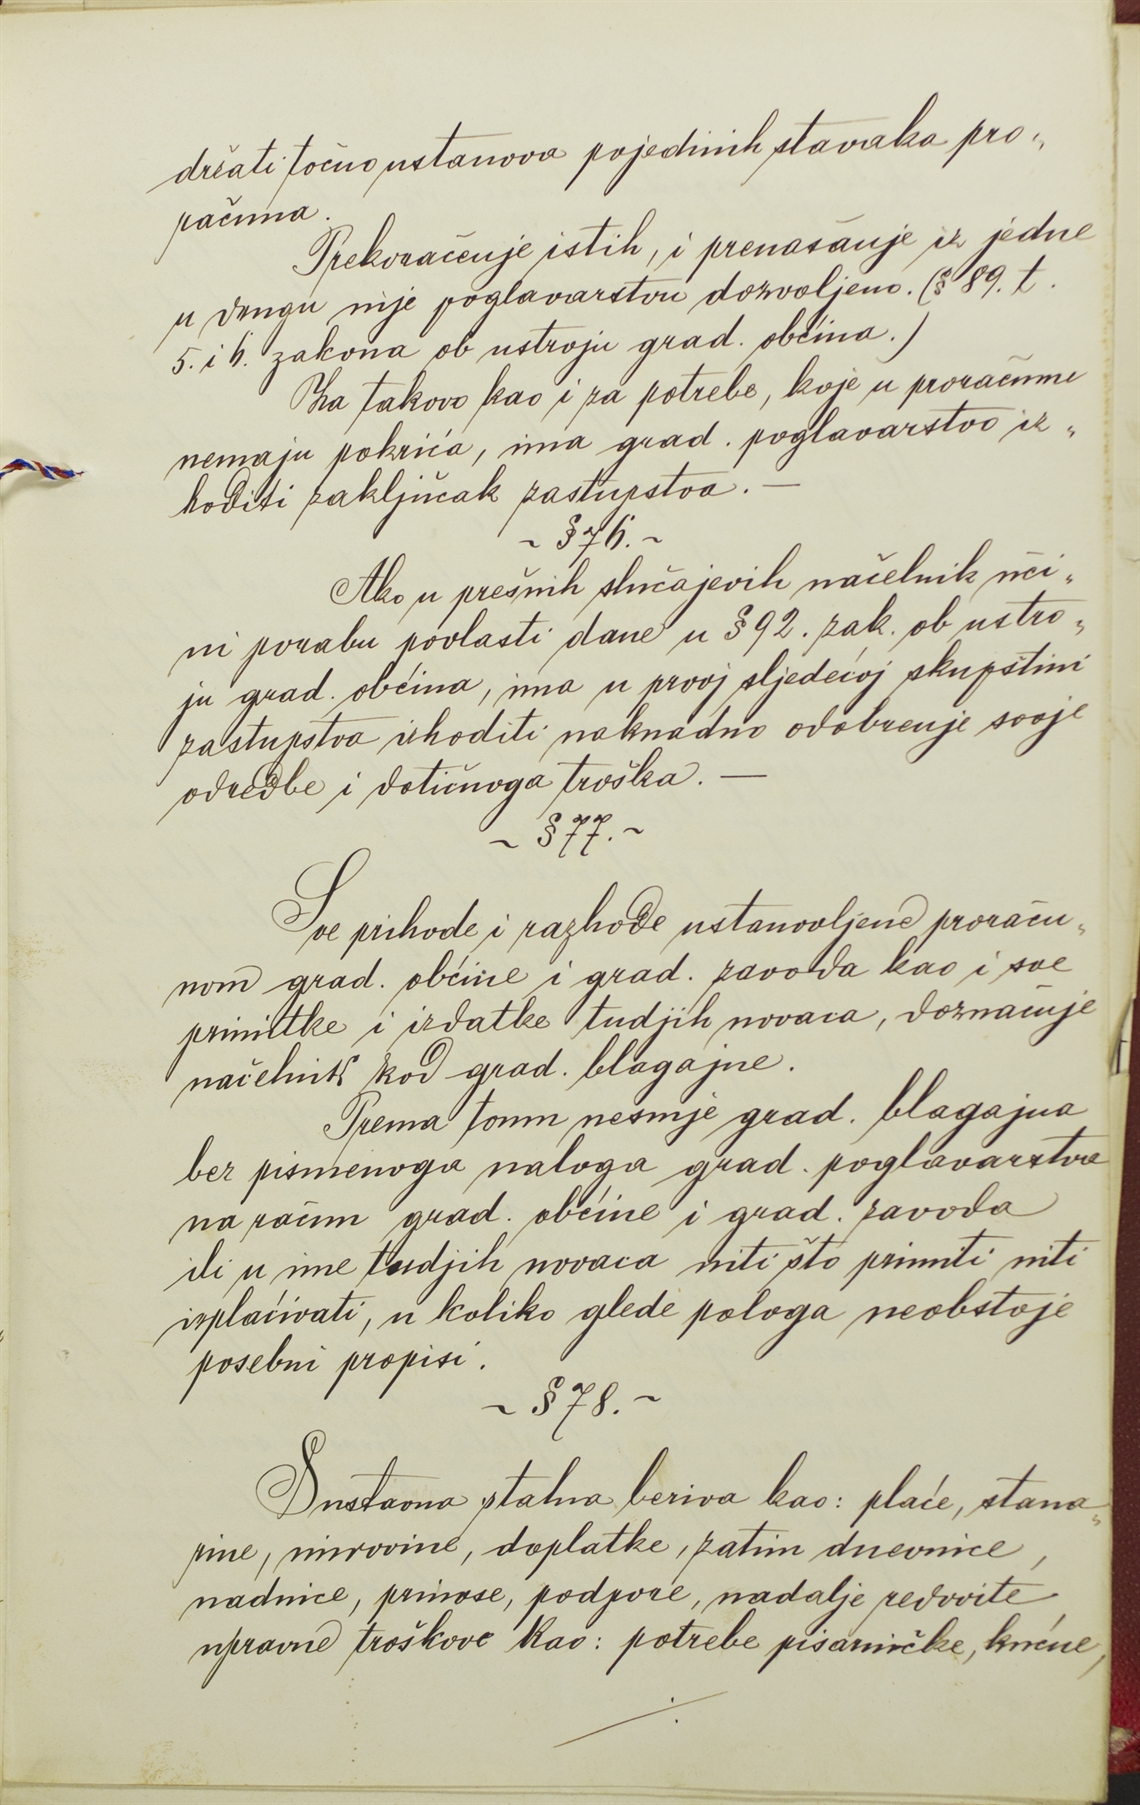 držati točno ustanova pojedinih stavaka pro„
računa.
Prekoračenje istih, i prenašanje iz jedne
u drugu nije poglavarstvu dozvoljeno. (§ 89. t.
5. i 6. zakona ob ustroju grad. občina.)
Za takovo kao i za potrebe, koje u proračunu
nemaju pokrića, ima grad. poglavarstvo iz„
hoditi zaključak zastupstva. —
~ § 76. ~
Ako u prešnih slučajevih načelnik uči„
ni porabu povlasti dane u § 92. zak. ob ustro„
ju grad. občina, ima u prvoj sljedećoj skupštini
zastupstva izhoditi naknadno odobrenje svoje
odredbe i dotičnoga troška. —
~ § 77. ~
Sve prihode i razhode ustanovljene proraču„
nom grad. občine i grad. zavoda kao i sve
primitke i izdatke tudjih novaca, doznačuje
načelnik kod grad. blagajne.
Prema tomu nesmije grad. blagajna
bez pismenoga naloga grad. poglavarstva
na račun grad. občine i grad. zavoda
ili u ime tudjih novaca niti što primiti niti
izplaćivati, u koliko glede pologa neobstoje
posebni propisi.
~ § 78. ~
Sustavna stalna beriva kao: plaće, stana„
rine, mirovine, doplatke, zatim dnevnice,
nadnice, prinose, podpore, nadalje redovite
upravne troškove kao: potrebe pisarničke, kućne,
·/·